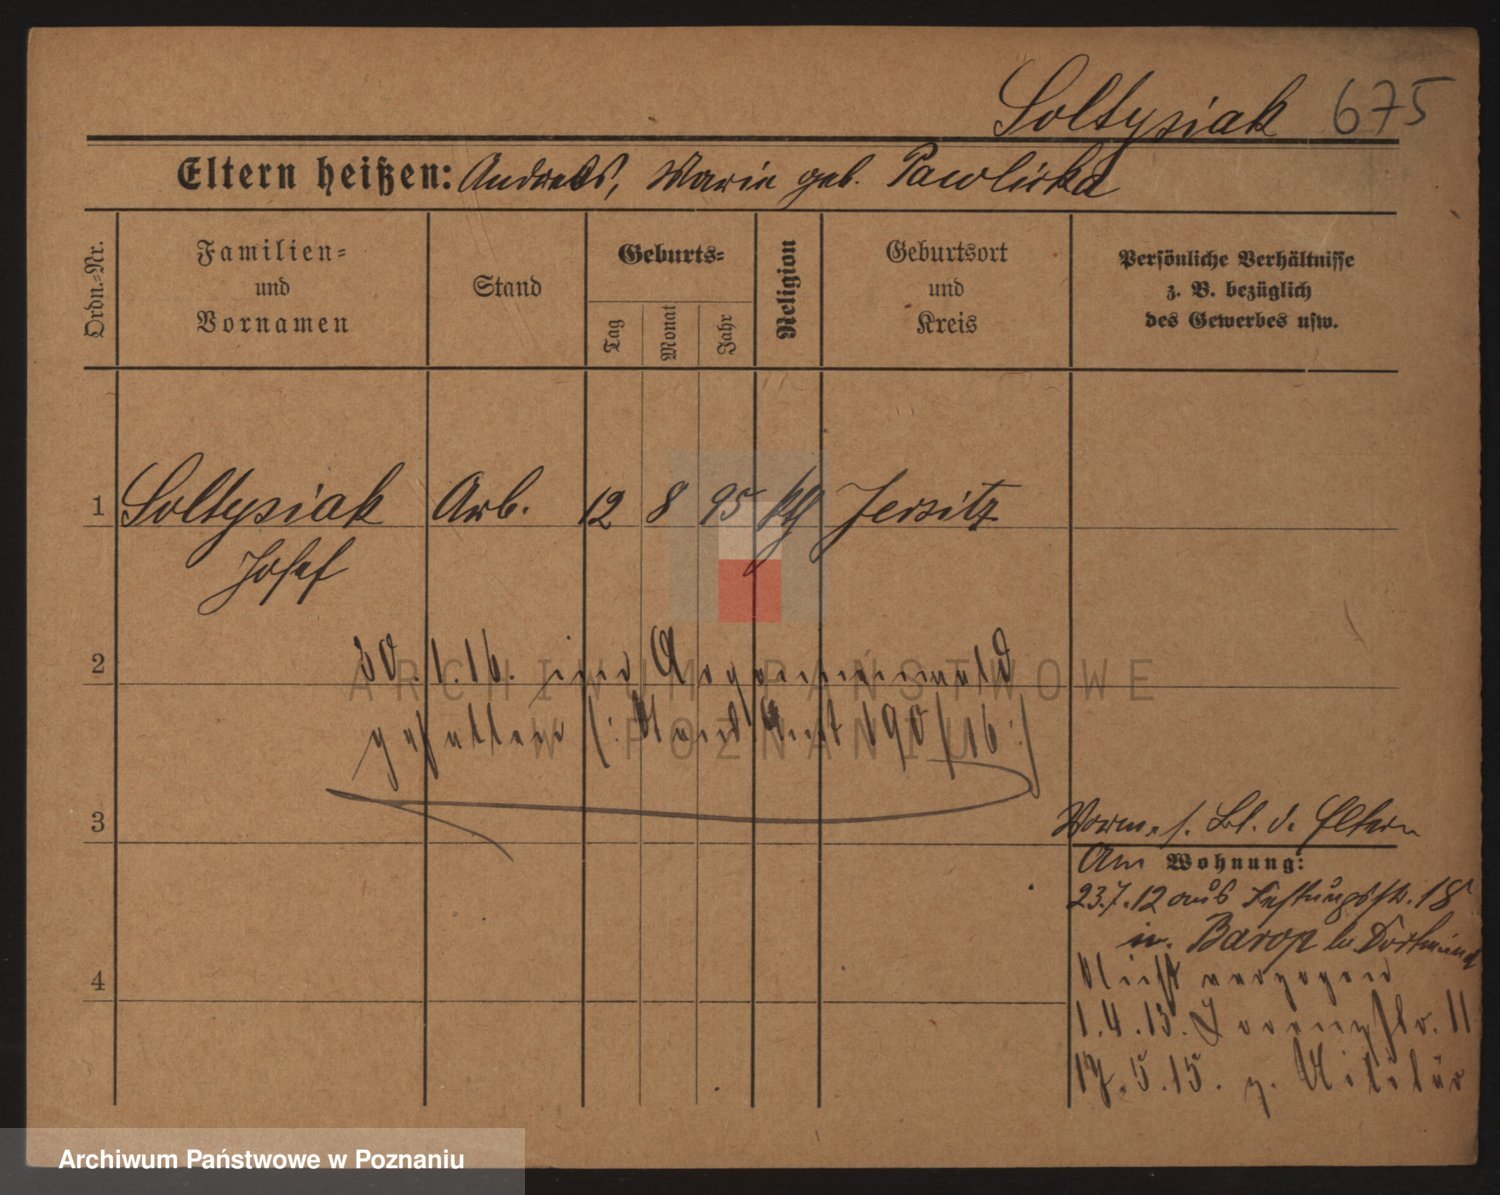 Soltysiak 675
Eltern heißen: Andreas, Marie geb. Pawlicka
Ordn.-Nr.
Familien-
und
Vornamen
Stand
Geburts-
Tag
Monat
Jahr
Religion
Geburtsort
und
Kreis
Persönliche Verhältnisse
z. B. bezüglich
des Gewerbes usw.
1 Soltysiak Arb. 12 8 95 Jersitz
Josef
2 30.1.16. im Argonnenwald
gefallen (: Stand. Amt 190/16 :)
3
Vorm. s. Bl. d. Eltern
Am Wohnung:
23.7.12 aus Festungsstr. 18
in Barop b. Dortmund
Nicht verzogen
4
1.4.13. Lorenzstr. 11
17.5.15. z. Militär
ARCHIWUM PAŃSTWOWE
W POZNANIU
Archiwum Państwowe w Poznaniu